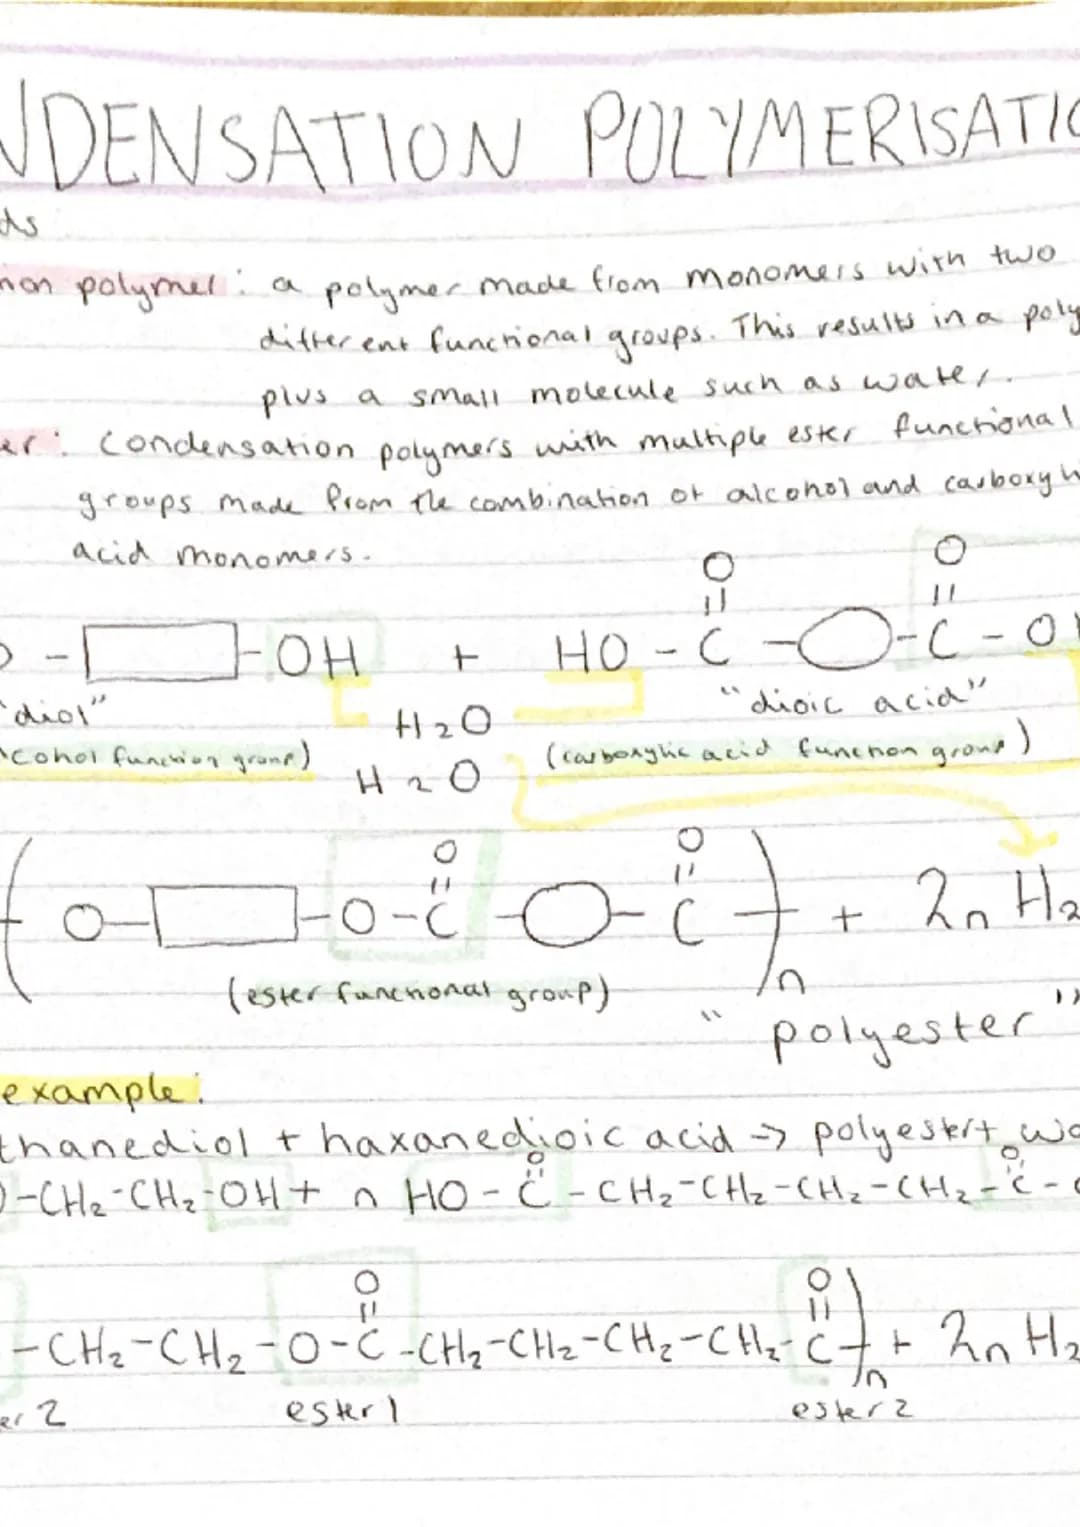 NDENSATION POLYMERISATIO
ds
ion polymer: a polymer made from monomers with two
different functional groups. This results in a poly
plus a small molecule such as water.
er: condensation polymers with multiple ester functional
groups made from the combination of alcohol and carboxyli
acid monomers.
O O
|| ||
O - -OH + HO - C - -C - OH
"diol" H2O "dioic acid"
lcohol function group) (carboxylic acid function group)
H2O
O O
|| ||
( O- -O-C - - C )n + 2n H2
(ester functional group)
"polyester"
example:
thanediol + haxanedioic acid → polyester + wa
O O
|| ||
O-CH2-CH2-OH + n HO-C-CH2-CH2-CH2-CH2-C-
O O
|| ||
-CH2-CH2-O-C-CH2-CH2-CH2-CH2-C )n + 2n H2
er 2 ester 1 ester 2